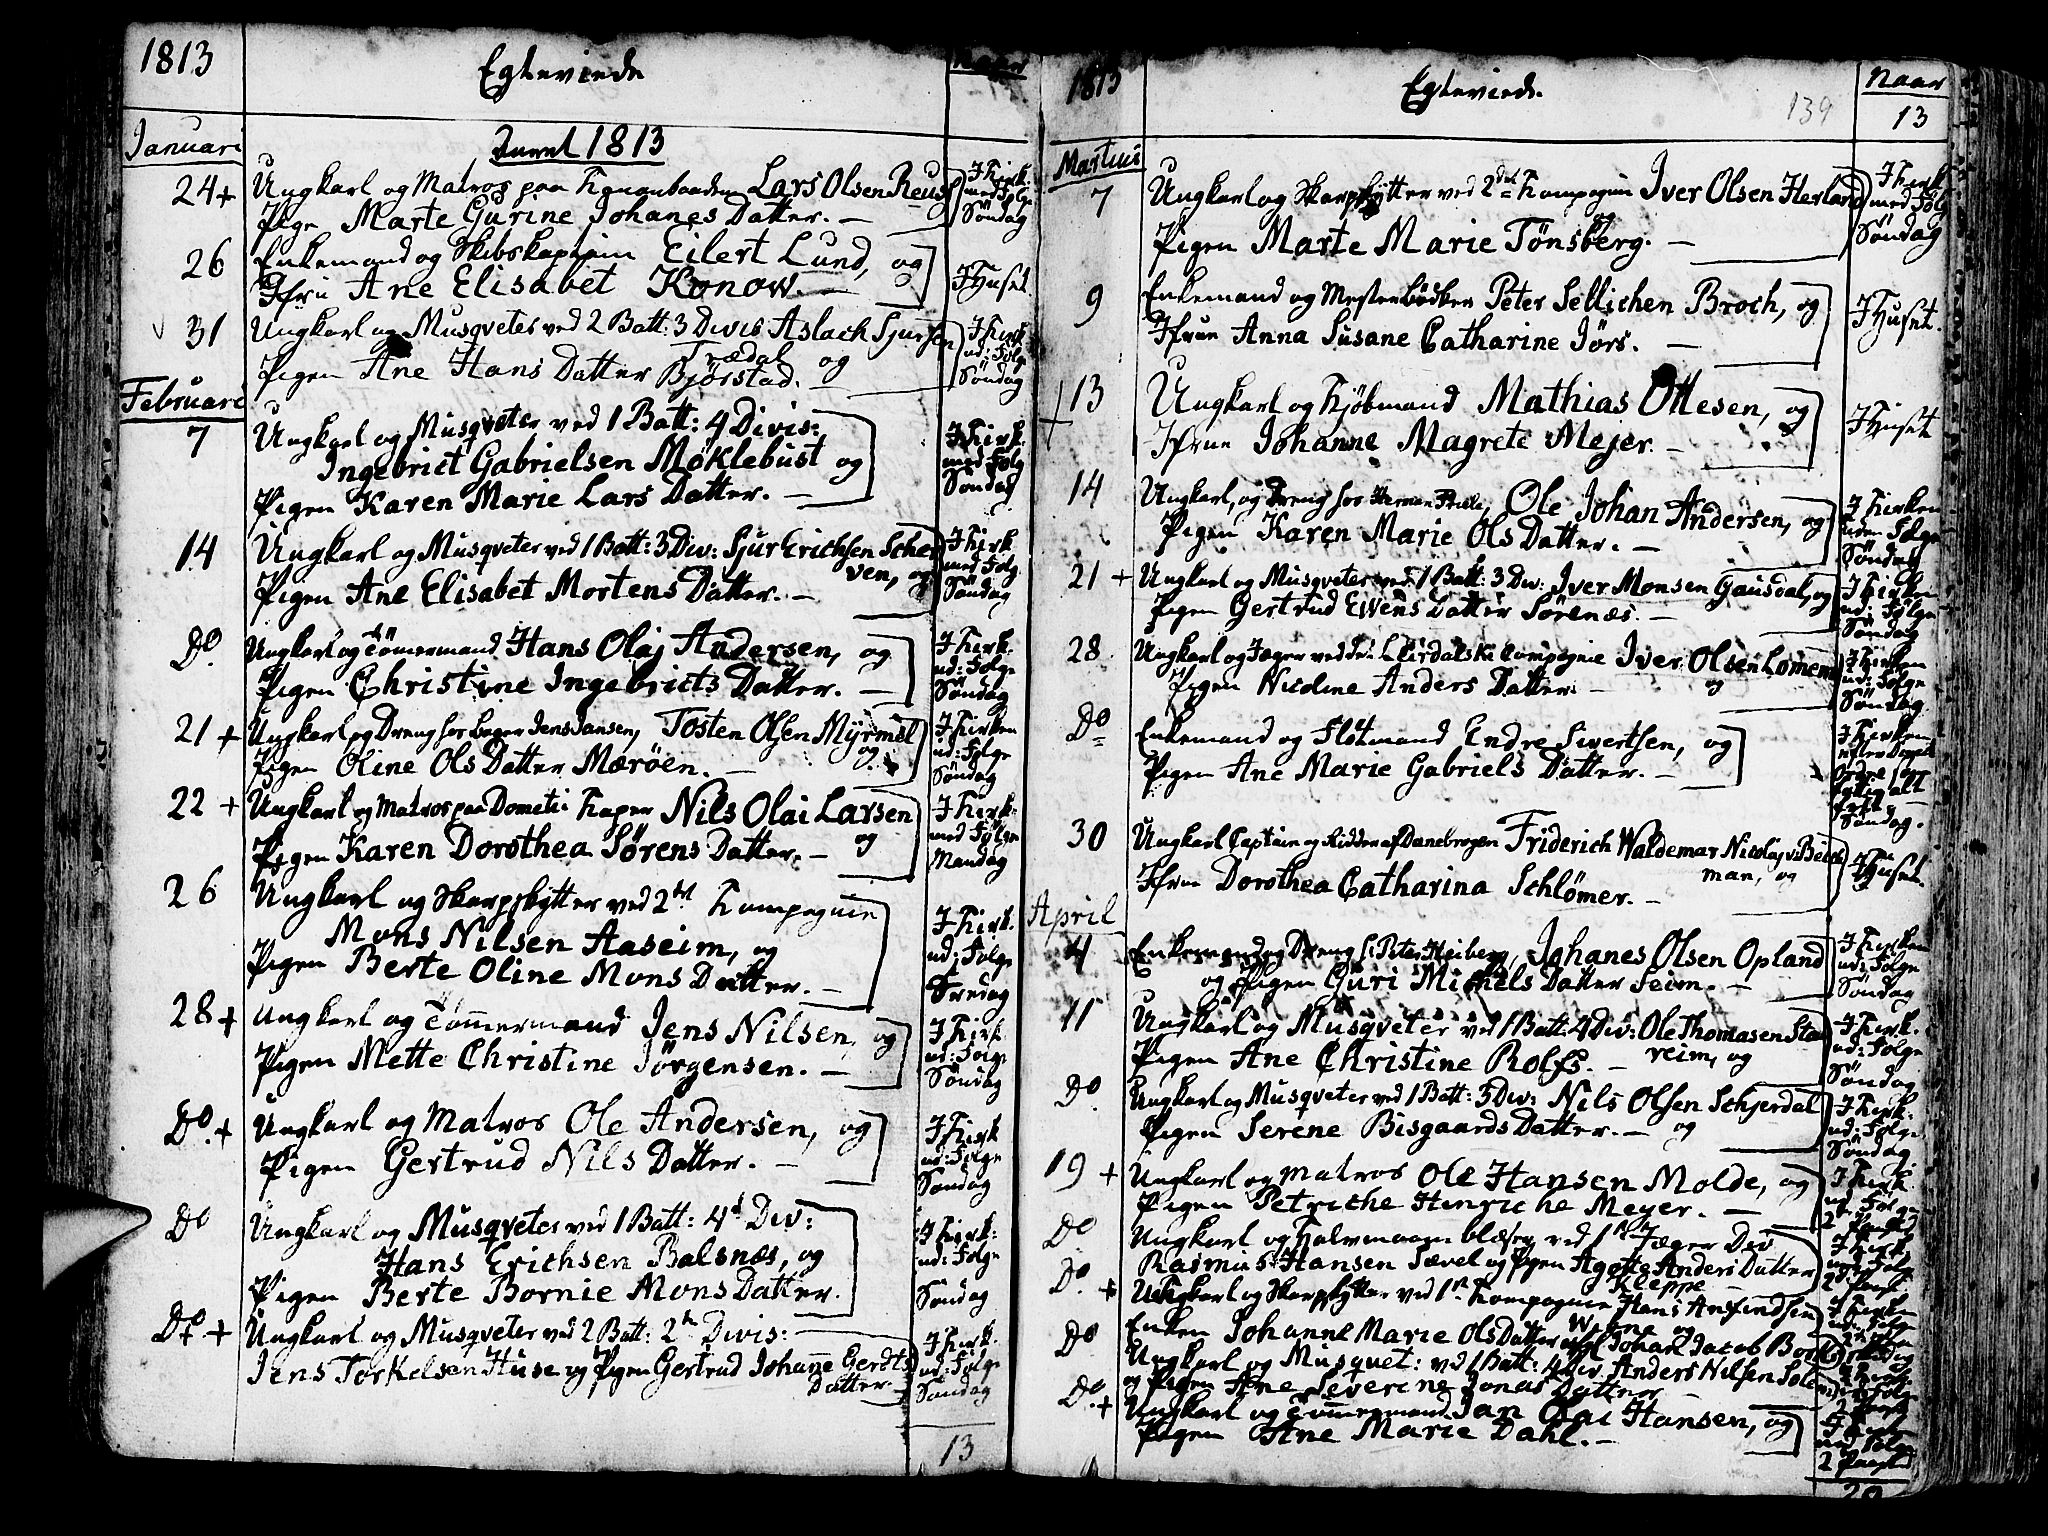 1813
Egteviede
Naar
Januari
Anno 1813
24 + Ungkarl og Matros paa Kanonbaaden Lars Olsen Reus
Pige Marte Gurine Johanes Datter. —
I Kirk
med Følge
Søndag
26 Enkemand og Skibskaptein Eilert Lund, og
Jfru Ane Elisabet Konow. —
I Huset.
31 Ungkarl og Musqveter ved 2 Batt: 3 Divis Aslach Sjursen
Trædal og
Pigen Ane Hans Datter Bjørstad.
I Kirk
ud: Følge
Søndag
Februari
7 Ungkarl og Musqveter ved 1 Batt: 4 Divis:
Ingebrict Gabrielsen Møklebust og
Pigen Karen Marie Lars Datter. —
I Kirk.
med Følg
Søndag
14 Ungkarl og Musqveter ved 1 Batt: 3 Div: Sjur Erichsen Scher
ven, og
Pigen Ane Elisabet Mortens Datter. —
I Kirk
med Følg.
Søndag
Do. Ungkarl og Tömermand Hans Olaj Andersen, og
Pigen Christine Ingebricts Datter. —
I Kirk.
ud: Følge
Søndag
21 + Ungkarl og Dreng hos Bager Jens Jansen, Tosten Olsen Myrmel
og
Pigen Oline Ols Datter Mærøen. —
I Kirken
ud: Følge
Søndag
22 + Ungkarl og Matros paa Dometi Kaper Nils Olai Larsen
Pigen Karen Dorothea Sørens Datter. — og
I Kirk.
med Følge
Mandag
26 Ungkarl og Skarpskytter ved 2det Kompagnie
Mons Nilsen Aaseim, og
Pigen Berte Oline Mons Datter. —
I Kirk.
ud: Følge
Fredag
28 + Ungkarl og Tömmermand Jens Nilsen, og
Pigen Mette Christine Jörgensen. —
I Kirk
ud: Følge
Søndag
Do. + Ungkarl og Matros Ole Andersen, og
Pigen Gertrud Nils Datter. —
I Kirk
ud: Følge
Søndag
Do Ungkarl og Musqveter ved 1 Batt: 4d Div:
Hans Erichsen Balsnæs, og
Pigen Berte Bornie Mons Datter.
I Kirk:
ud: Følge
Søndag
Do + Ungkarl og Musqveter ved 2 Batt: 2n Divis:
Jens Torkelsen Huse og Pigen Gertrud Johanne Gerdts
Datter. —
I Kirk.
ud: Følge
Søndag
13
1813
Egteviede.
139
Naar
13
Martius
7 Ungkarl og Skarpskytter ved 2det Kompagnie Iver Olsen Herland
og
Pigen Marte Marie Tönsberg. —
I Kirk
med Følg
Søndag
9 Enkemand og Mester Bödker Peter Sellichen Broch, og
Jfrue Anna Susane Catharine Jörs. —
I Huset.
13 Ungkarl og Kjöbmand Mathias Ottesen, og
Jfrue Johanne Magrete Mejer. —
I Huset
14 Ungkarl, og Dreng hos Herman Friele, Ole Johan Andersen, og
Pigen Karen Marie Ols Datter. —
I Kirken
uden Følge
Søndag
21 + Ungkarl og Musqveter ved 1 Batt: 3 Div: Iver Monsen Gausdal, og
Pigen Gertrud Ewens Datter Sörenæs. —
I Kirken
ud: Følge
Søndag
28. Ungkarl og Jæger ved det Leirdalske Kompagnie Iver Olsen Lomem
Pigen Nicoline Anders Datter. — og
I Kirken
ud: Følge
Søndag
Do Enkemand og Flötmand Endre Sivertsen, og
Pigen Ane Marie Gabriels Datter. —
I Kirken
Søndag.
30 Ungkarl Captein og Ridder af Danebrogen Friderich Waldemar Nicolaj v. Beich
man, og
Jfrue Dorothea Catharina Schlømer. —
I Huset.
April
4 Enkemand og Dreng h: Peter Heiberg, Johanes Olsen Opland
og Pigen Guri Michels Datter Seim. —
I Kirken
ud: Følge
Søndag
11 Ungkarl og Musqveter ved 1 Batt: 4 Div: Ole Thomasen Stav
reim, og
Pigen Ane Christine Rolfs. —
I Kirk.
ud: Følge
Søndag
Do. Ungkarl og Musqveter ved 1 Batt: 3 Div: Nils Olsen Schjerdal
Pigen Serene Bisgaards Datter. — og
I Kirk.
ud: Følge
Søndag
19 + Ungkarl og Matros Ole Hansen Molde, og
Pigen Petriche Hinriche Meyer. —
I Kirk
ud: Følge
2 Paasd
Do Ungkarl og Halvmaane blæser ved 1ste Jæger Div
Rasmus Hansen Sævel og Pigen Agotte Anders Datter
Kleppe
I Kirk
Do. + Ungkarl og Skarpskytter ved 1st Kompagnie Hans Anfindsen
Wigne og
Enken Johanne Marie Ols Datter
I Kirken
Do Ungkarl og Musquet: ved 1 Batt: 4 Div Anders Nilsen
og Pigen Ane Severine Jonas Datter —
Do. + Ungkarl og Tömmermand Jan Olai Hansen, og
Pigen Ane Marie Dahl. —
I Kirk
ud Følge
2 Paasd
20